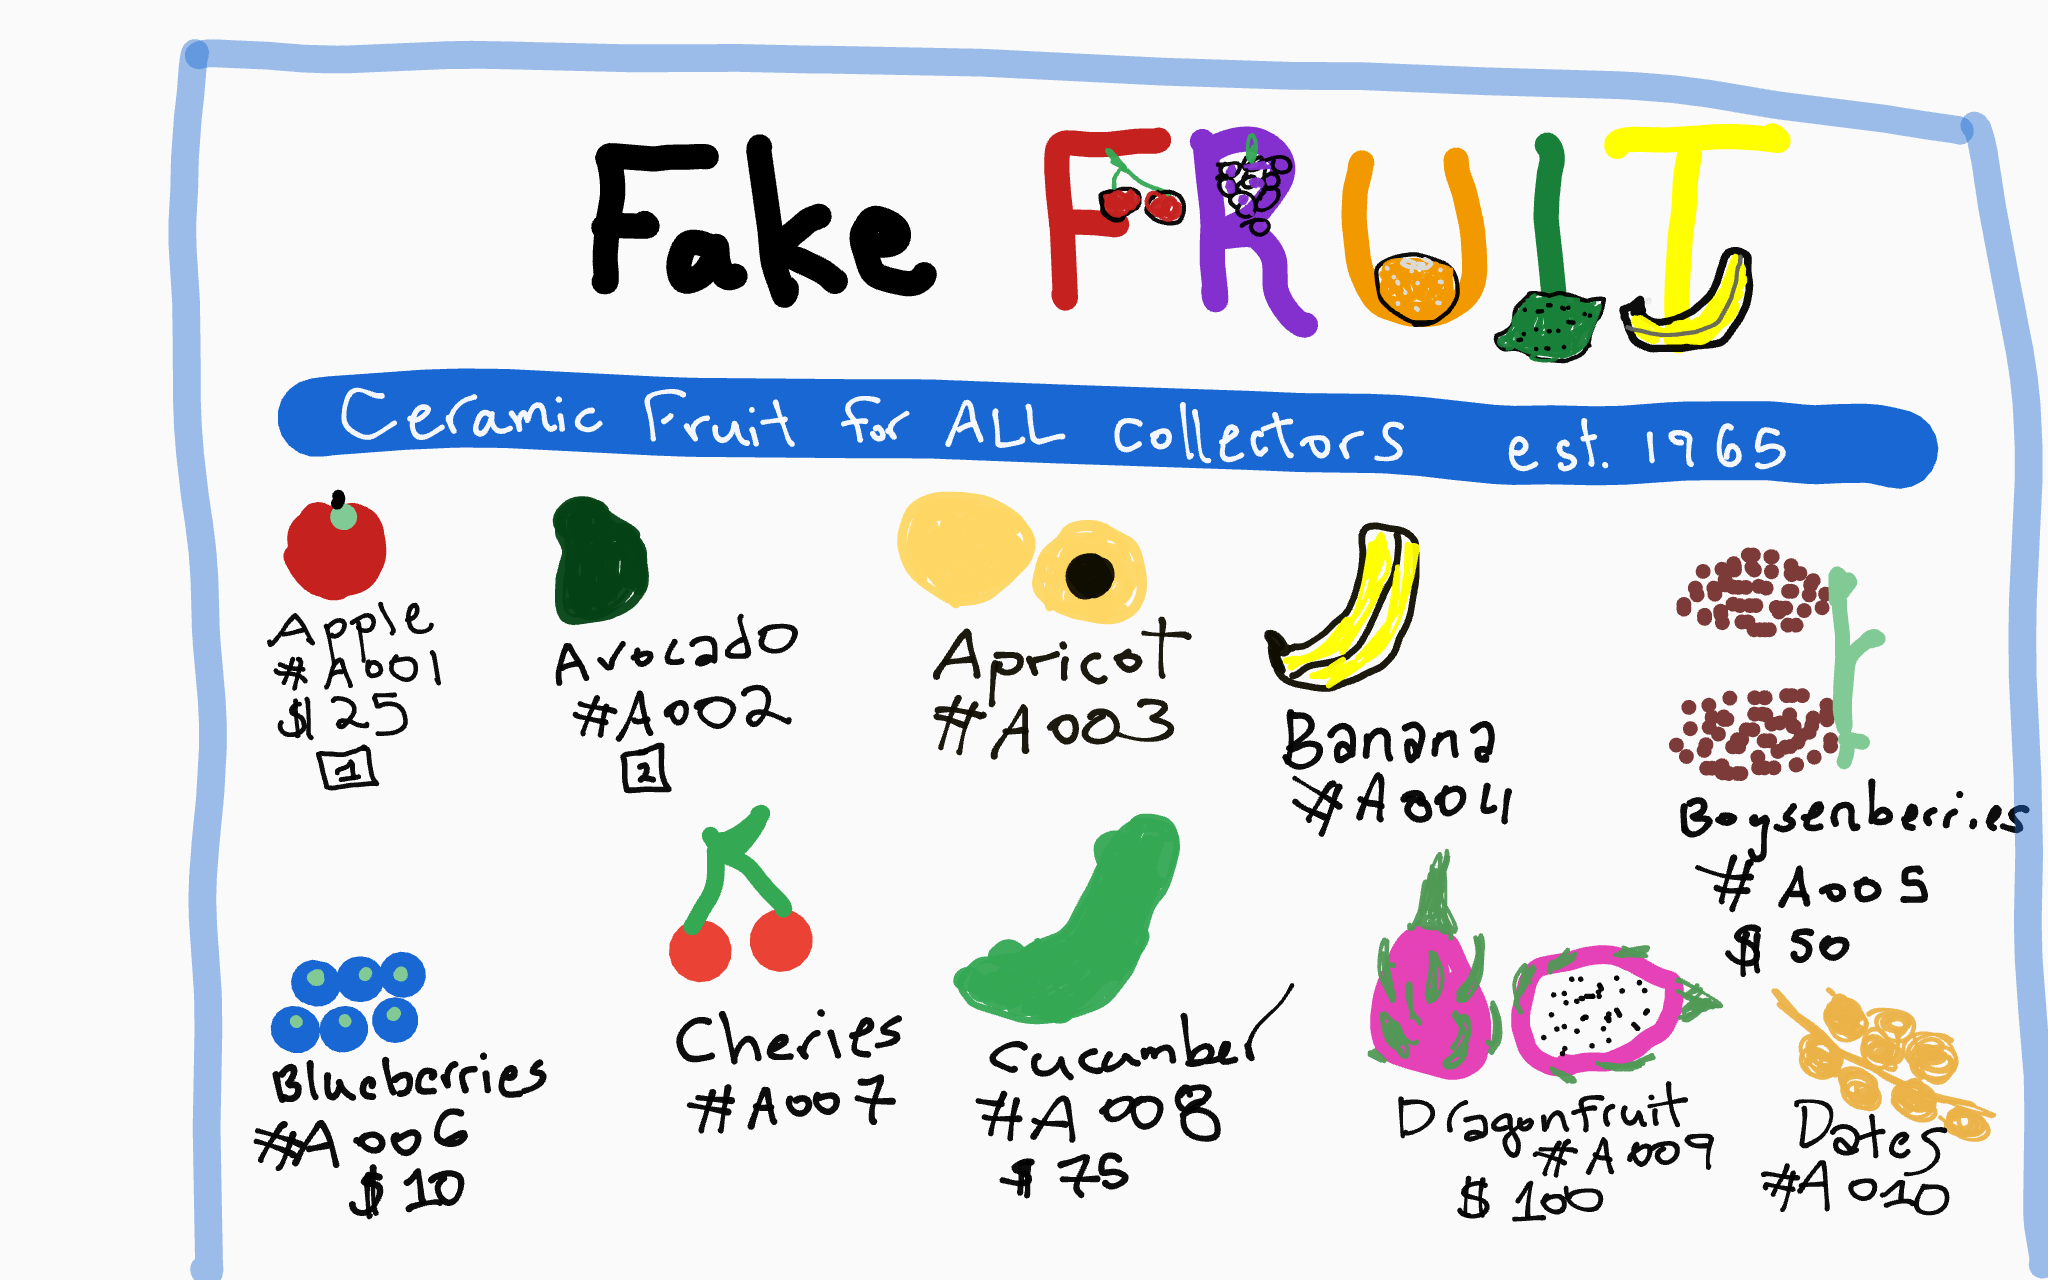 Fake FRUIT
Ceramic Fruit for ALL Collectors est. 1965
Apple
#A001
$125
1
Avocado
#A002
2
Apricot
#A003
Banana
#A004
Boysenberries
#A005
$50
Blueberries
#A006
$10
Cheries
#A007
Cucumber
#A008
$75
Dragonfruit
#A009
$100
Dates
#A010